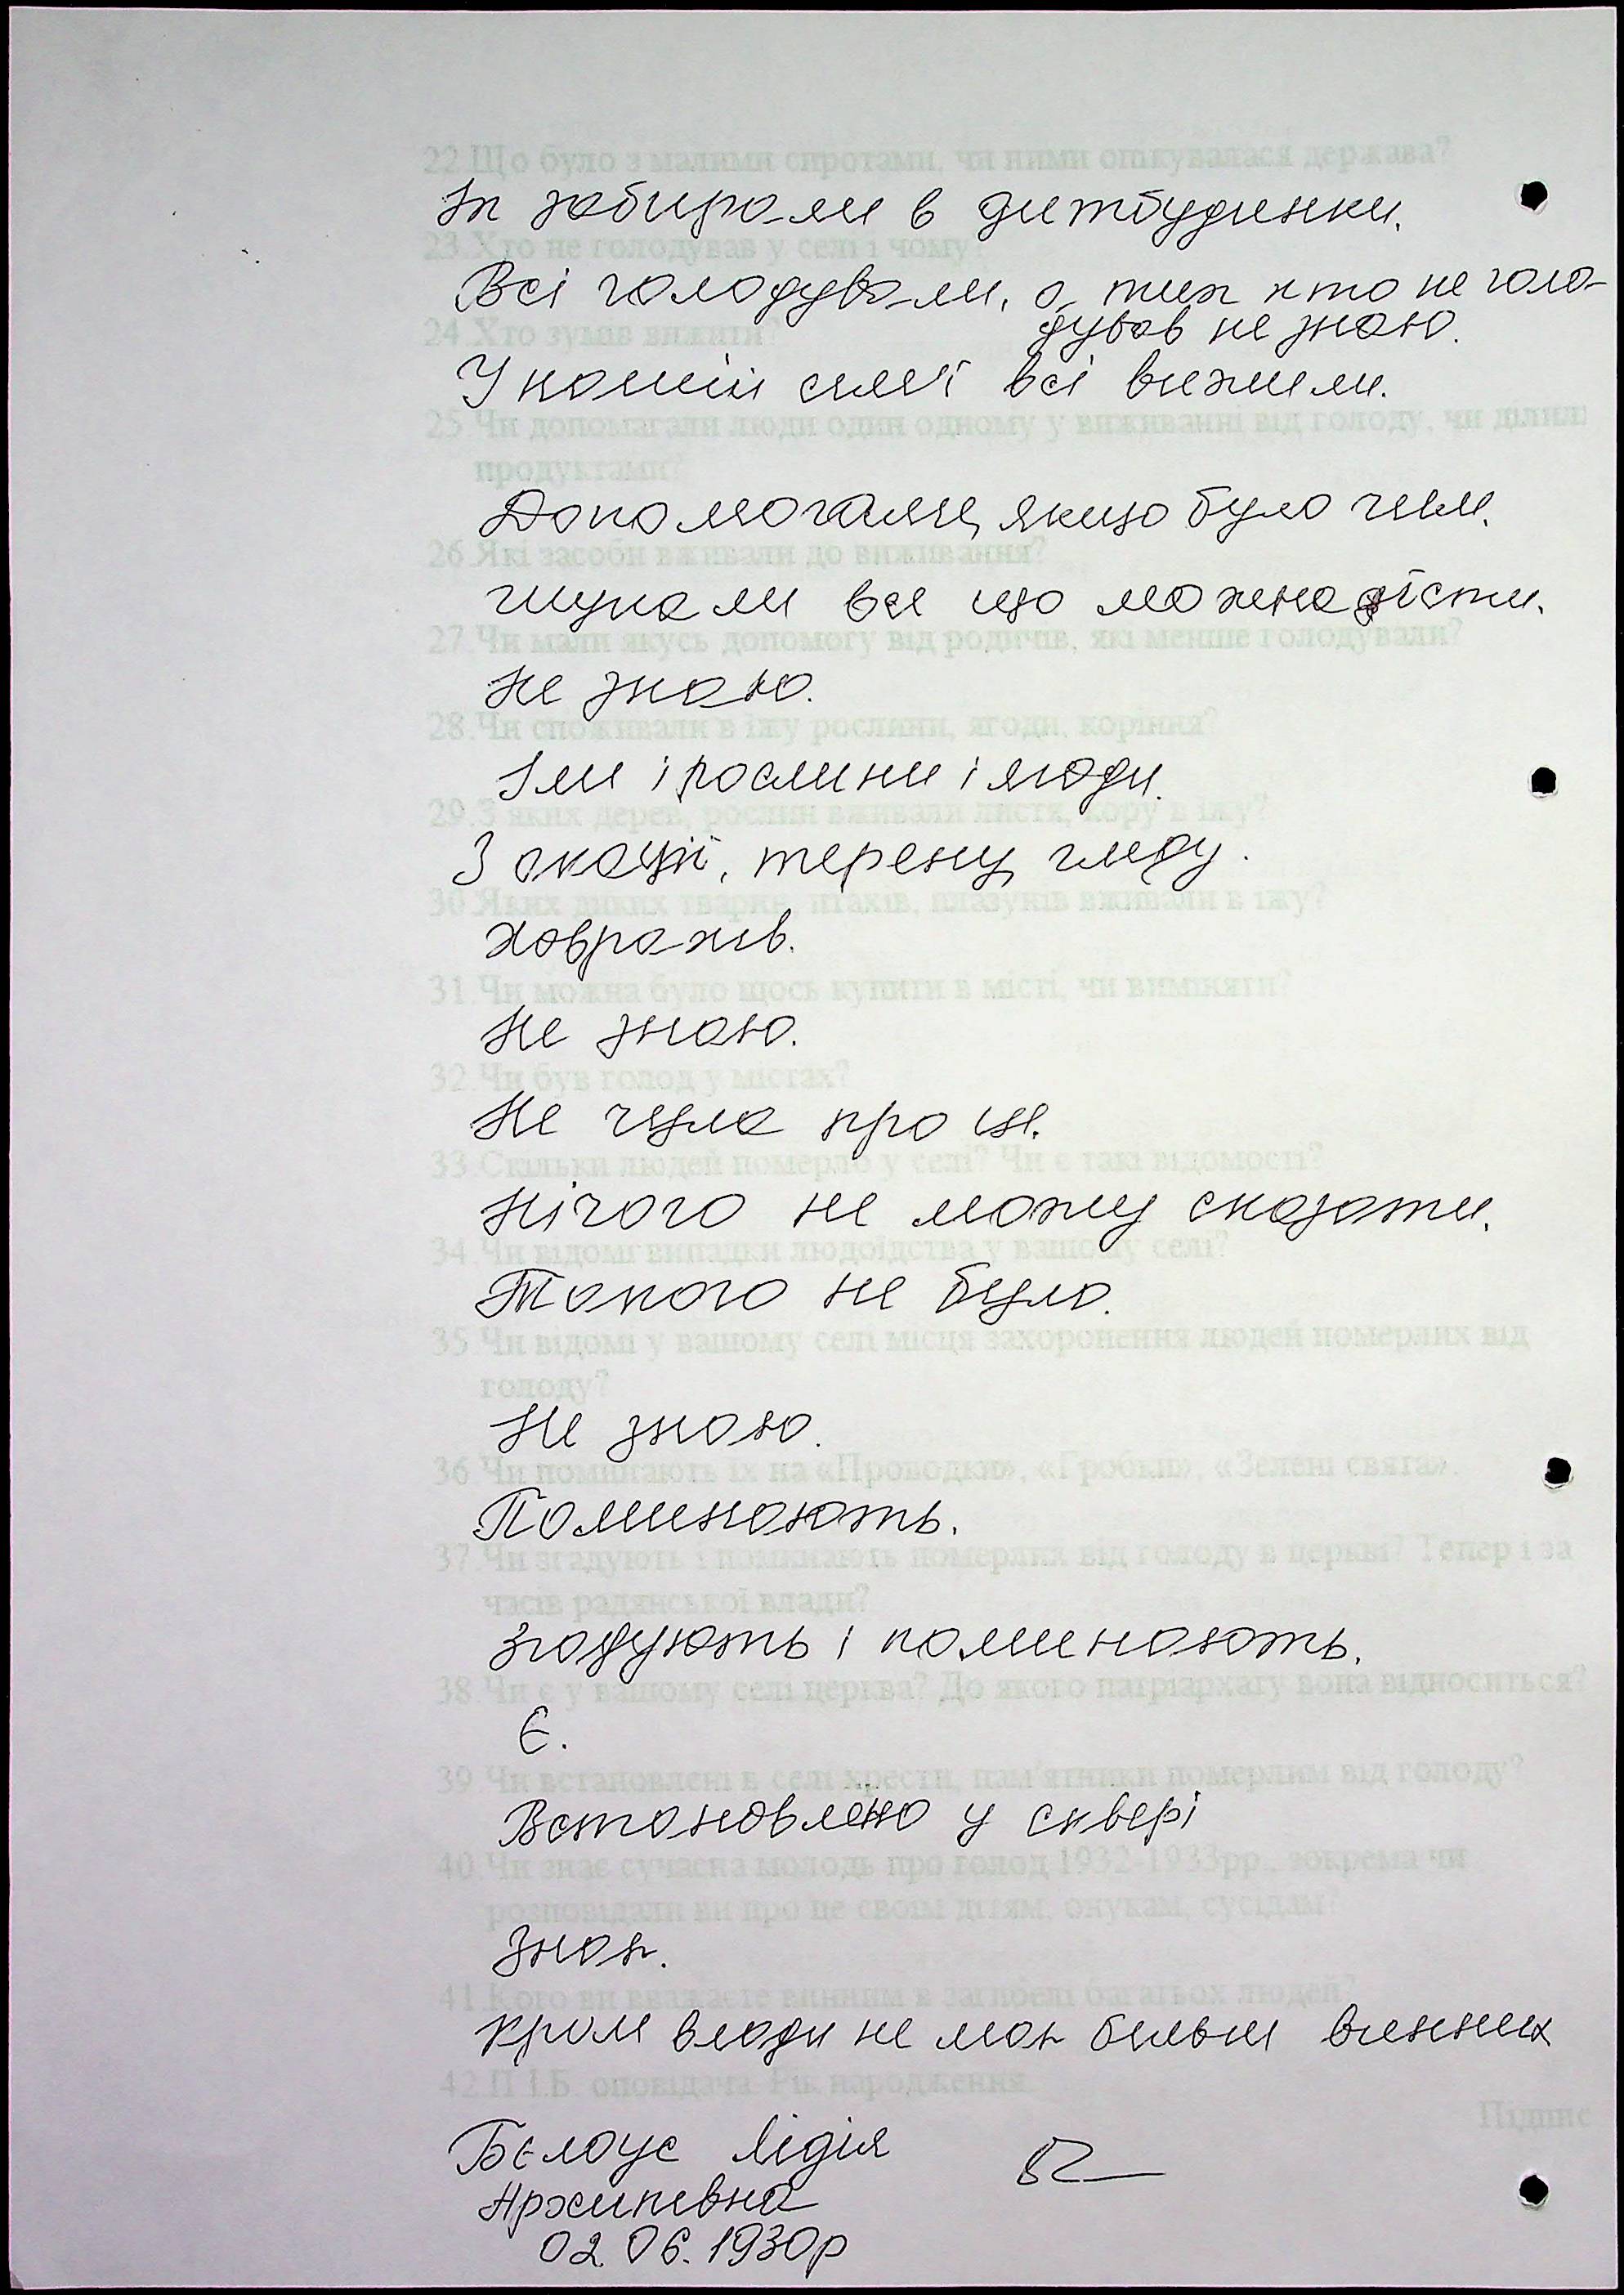 22.Що було з малими сиротами, чи ними опікувалася держава?
Їх забирали в дитбудинки.
23.Хто не голодував у селі і чому?
Всі голодували, о тих хто не голо-
дував не знаю.
24.Хто зумів вижити?
У нашій сем'ї всі вижили.
25.Чи допомагали люди один одному у виживанні від голоду, чи ділили
продуктами?
Допомагали, якщо було чим.
26.Які засоби вживали до виживання?
шукали все що можна дісти.
27.Чи мали якусь допомогу від родичів, які менше голодували?
Не знаю.
28.Чи споживали в їжу рослини, ягоди, коріння?
Їли і рослини і ягоди.
29.З яких дерев, рослин вживали листя, кору в їжу?
З акації, терену, гледу.
30.Яких диких тварин, птахів, плазунів вживали в їжу?
Ховрахів.
31.Чи можна було щось купити в місті, чи виміняти?
Не знаю.
32.Чи був голод у містах?
Не чула про це.
33.Скільки людей померло у селі? Чи є такі відомості?
Нічого не можу сказати.
34.Чи відомі випадки людоїдства у вашому селі?
Такого не було.
35.Чи відомі у вашому селі місця захоронення людей померлих від
голоду?
Не знаю.
36.Чи поминають їх на «Проводки», «Гробки», «Зелені свята».
Поминають.
37.Чи згадують і поминають померлих від голоду в церкві? Тепер і за
часів радянської влади?
Згадують і поминають.
38.Чи є у вашому селі церква? До якого патріархату вона відноситься?
Є.
39.Чи встановлені в селі хрести, пам'ятники померлим від голоду?
Встановлено у сквері
40.Чи знає сучасна молодь про голод 1932-1933рр., зокрема чи
розповідали ви про це своїм дітям, онукам, сусідам?
Знає.
41.Кого ви вважаєте винним в загибелі багатьох людей?
Кром влади не має більш винних
42.П.І.Б. оповідача. Рік народження.
Підпис
Бєлоус Лідія
Архипівна
02.06.1930р